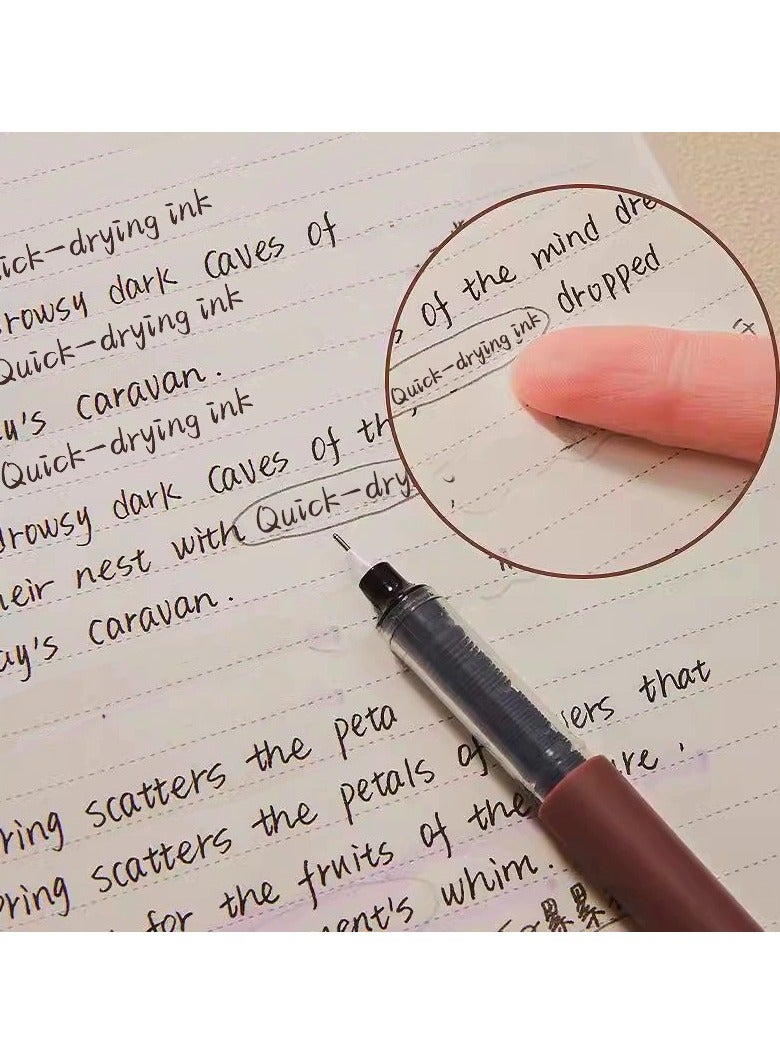 ick-drying ink
rowsy dark caves of
Quick-drying ink
y's caravan.
Quick-drying ink
drowsy dark caves of th
eir nest with Quick-dry
ay's caravan.
of the mind dre
dropped
Quick-drying ink
ring scatters the peta
ers that
pring scatters the petals of
re,
for the fruits of the
ent's whim.